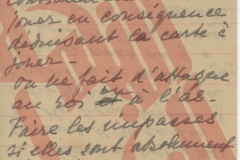 jouer en conséquence
déduisant la carte à
jouer –
on ne fait d'attaque
au roi et à l'as –
Faire les impasses
si elles sont absolument